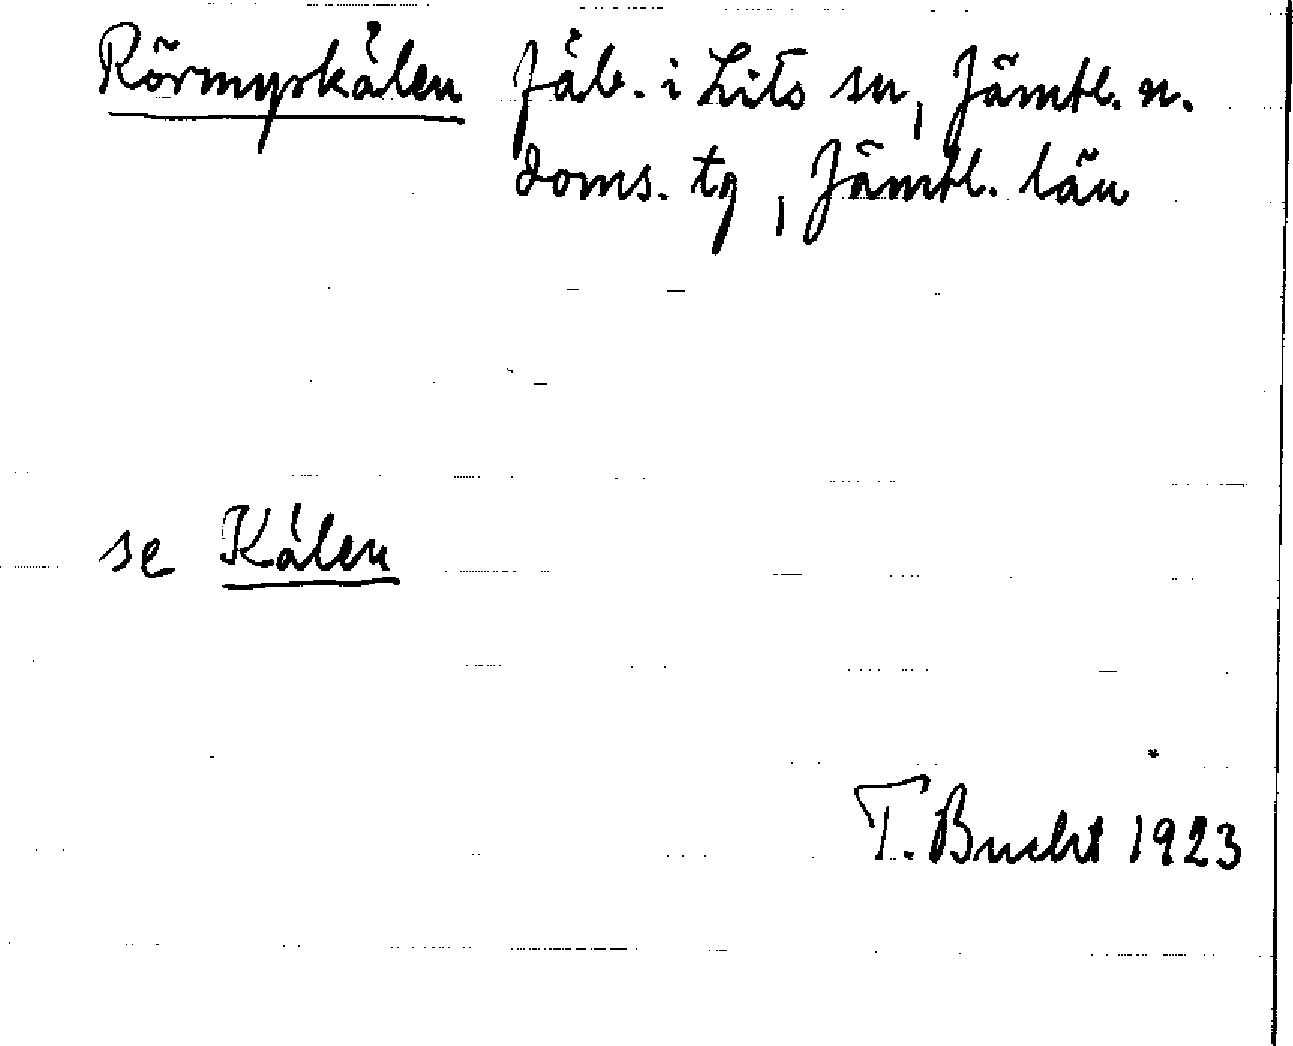 Rörmyrkälen fäb. i Lits sn, Jämtl. n.
doms. tg, Jämtl. län
se Kälen
T. Bucht 1923